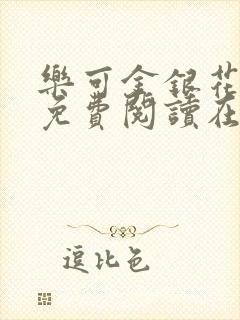 樂可金銀花
免費閱讀在
逗比色